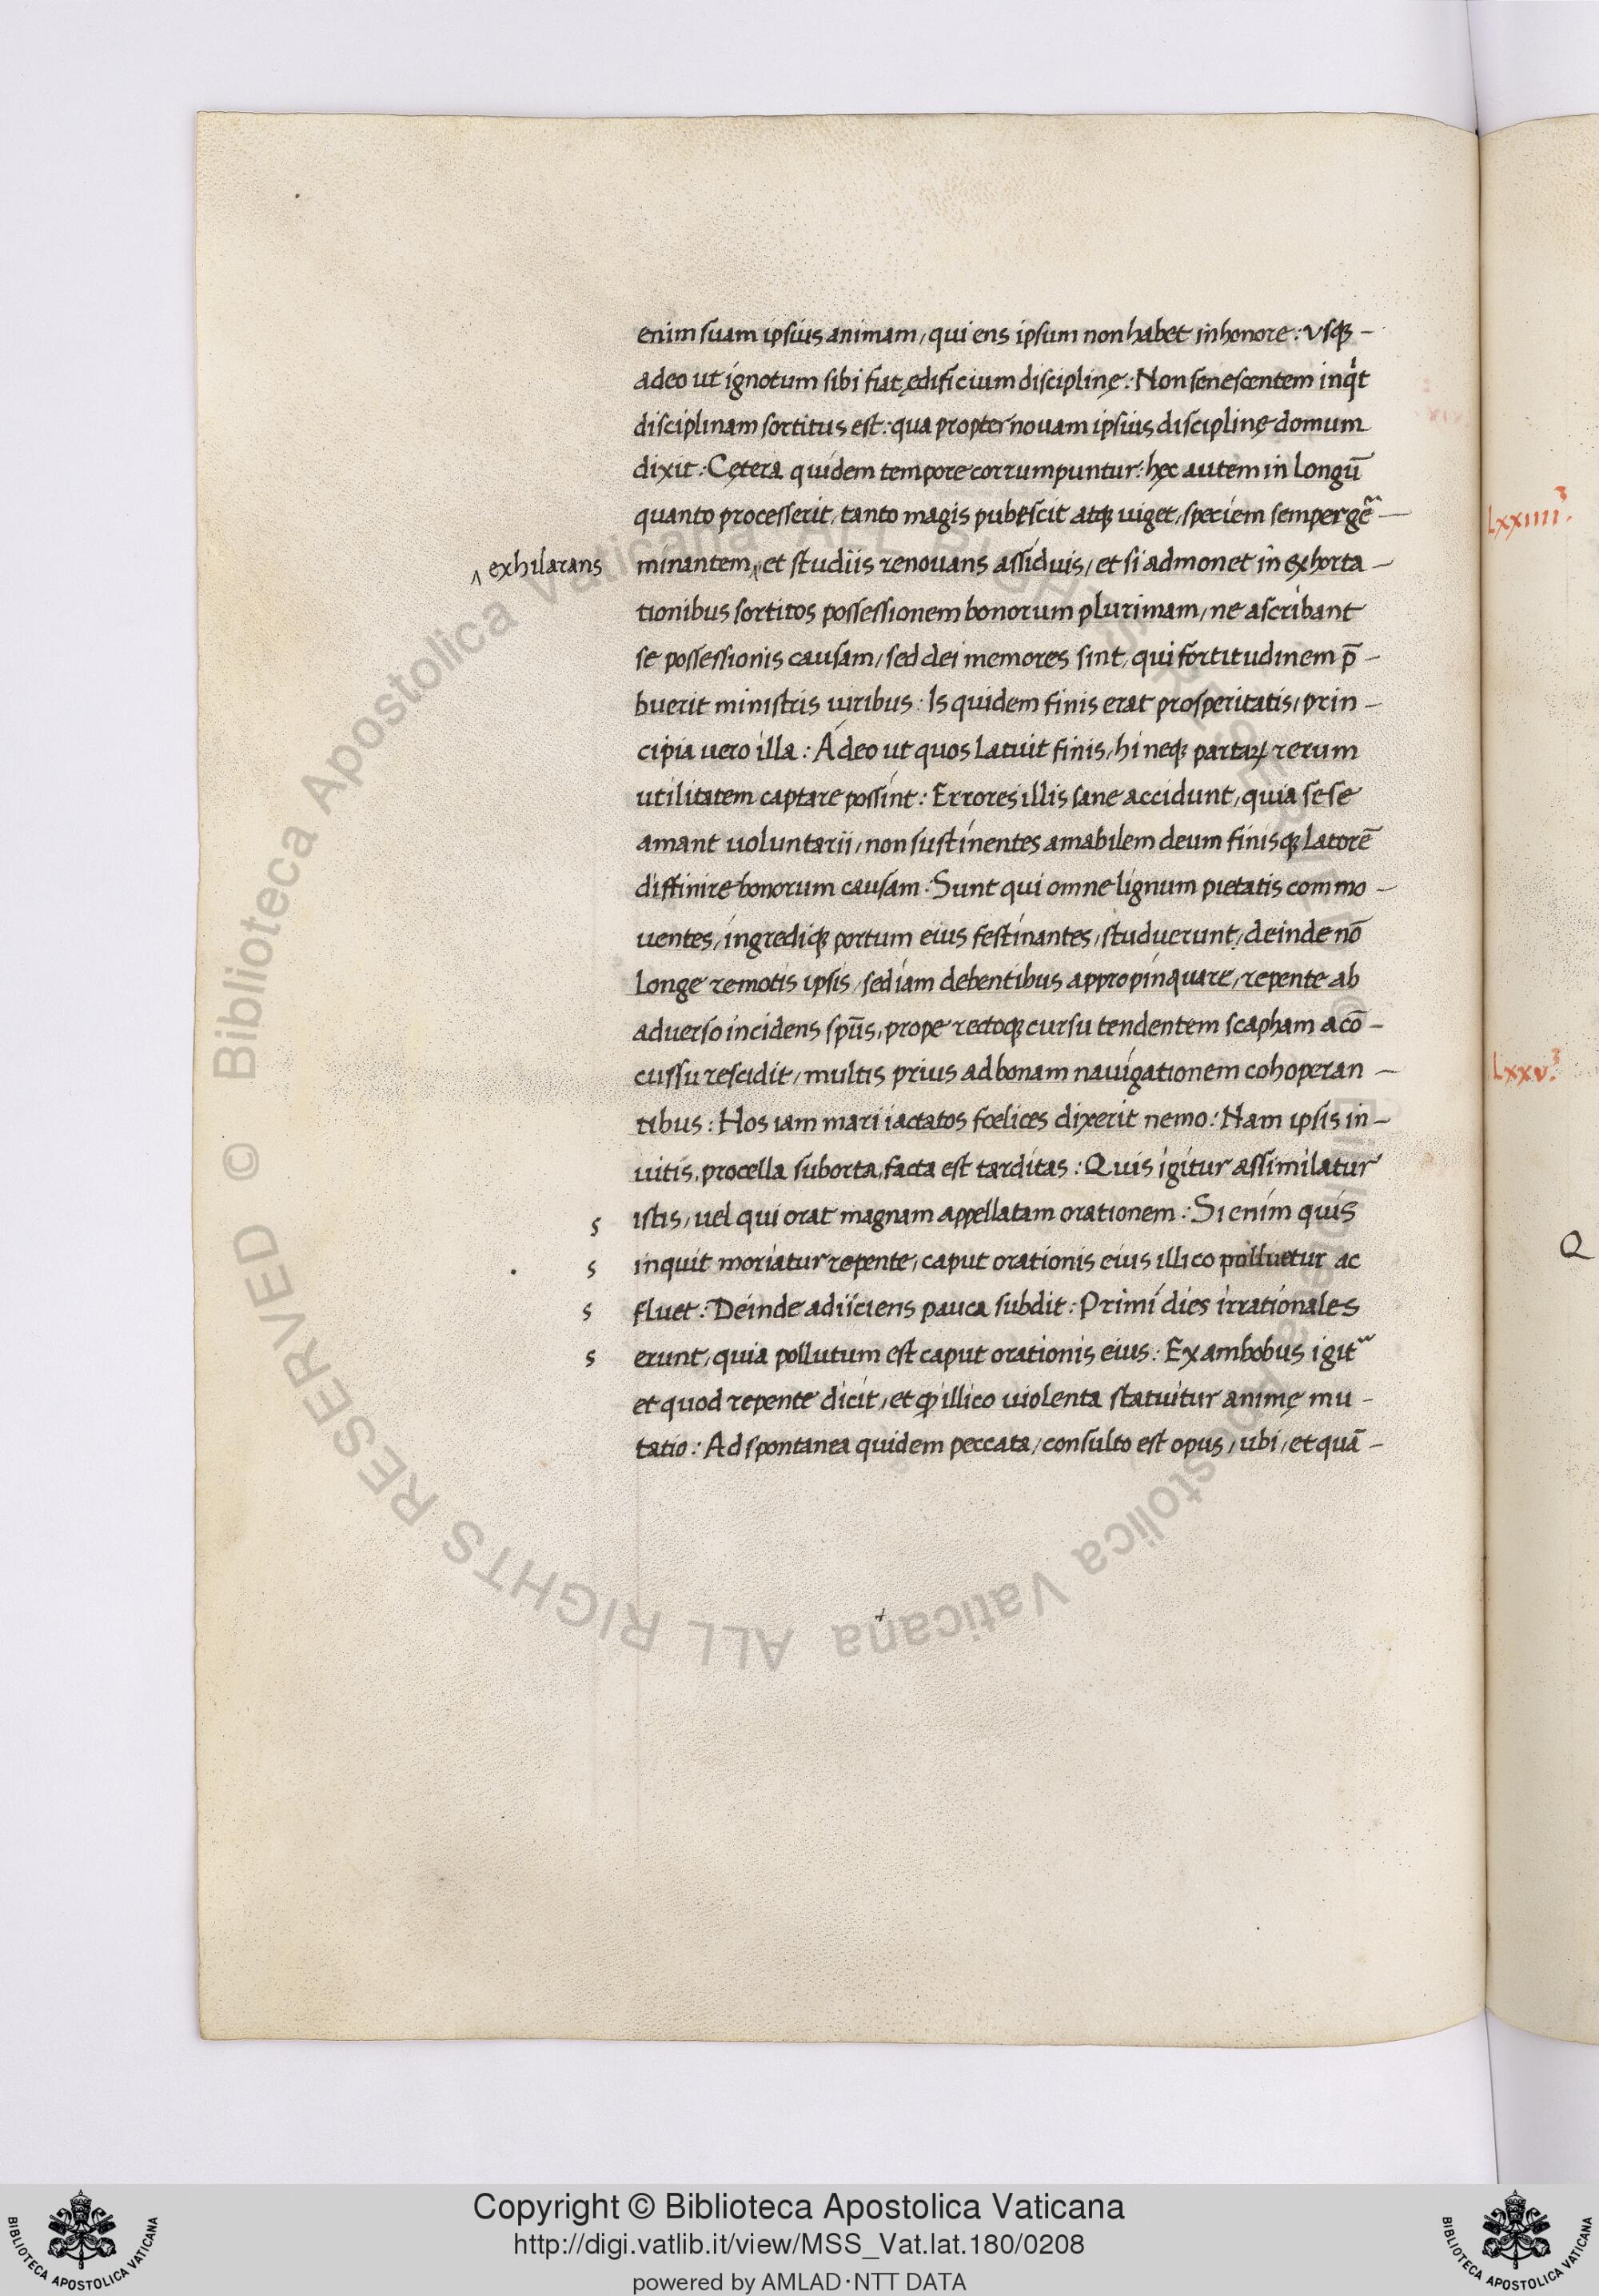 enim suam ipsius animam, qui ens ipsum non habet in honore: vsqꝫ -
adeo ut ignotum sibi fiat ędificium disciplinę: Non senescentem inqͥt
disciplinam sortitus est: qua propter nouam ipsius disciplinę domum
dixit: Cętera quidem tempore corrumpuntur: hęc autem in longū
quanto processerit, tanto magis pubescit atqꝫ uiget, speciem semper gẽ -
‸ exhilarans
minantem,‸ et studiis renouans assiduis, et si admonet in exhorta -
tionibus sortitos possessionem bonorum plurimam, ne ascribant
se possessionis causam, sed dei memores sint, qui fortitudinem p̄ -
buerit ministris uiribus: Is quidem finis erat prosperitatis, prin -
cipia uero illa: Adeo ut quos latuit finis, hi neqꝫ partaꝝ rerum
utilitatem captare possint: Errores illis sane accidunt, quia sese
amant uoluntarii, non sustinentes amabilem deum finisqꝫ latorē
diffinire bonorum causam. Sunt qui omne lignum pietatis commo -
uentes, ingrediqꝫ portum eius festinantes, studuerunt, deinde nō
longe remotis ipsis, sed iam debentibus appropinquare, repente ab
aduerso incidens spūs, prope rectoqꝫ cursu tendentem scapham acō -
cussu rescidit, multis prius ad bonam nauigationem cohoperan -
tibus: Hos iam mari iactatos fœlices dixerit nemo: Nam ipsis in -
uitis, procella suborta, facta est tarditas: Quis igitur assimilatur
s istis, uel qui orat magnam appellatam orationem: Si enim quis
s inquit moriatur repente, caput orationis eius illico polluetur ac
s fluet: Deinde adiiciens pauca subdit: Primi dies irrationales
s erunt, quia pollutum est caput orationis eius: Ex ambobus igit᷒
et quod repente dicit, et ꝙ illico uiolenta statuitur animę mu -
tatio: Ad spontanea quidem peccata, consulto est opus, ubi, et quā -
Lxxiiii
Lxxv
Q
© Biblioteca Apostolica Vaticana ALL RIGHTS RESERVED
Copyright © Biblioteca Apostolica Vaticana
http://digi.vatlib.it/view/MSS_Vat.lat.180/0208
powered by AMLAD·NTT DATA
BIBLIOTECA APOSTOLICA VATICANA
BIBLIOTECA APOSTOLICA VATICANA